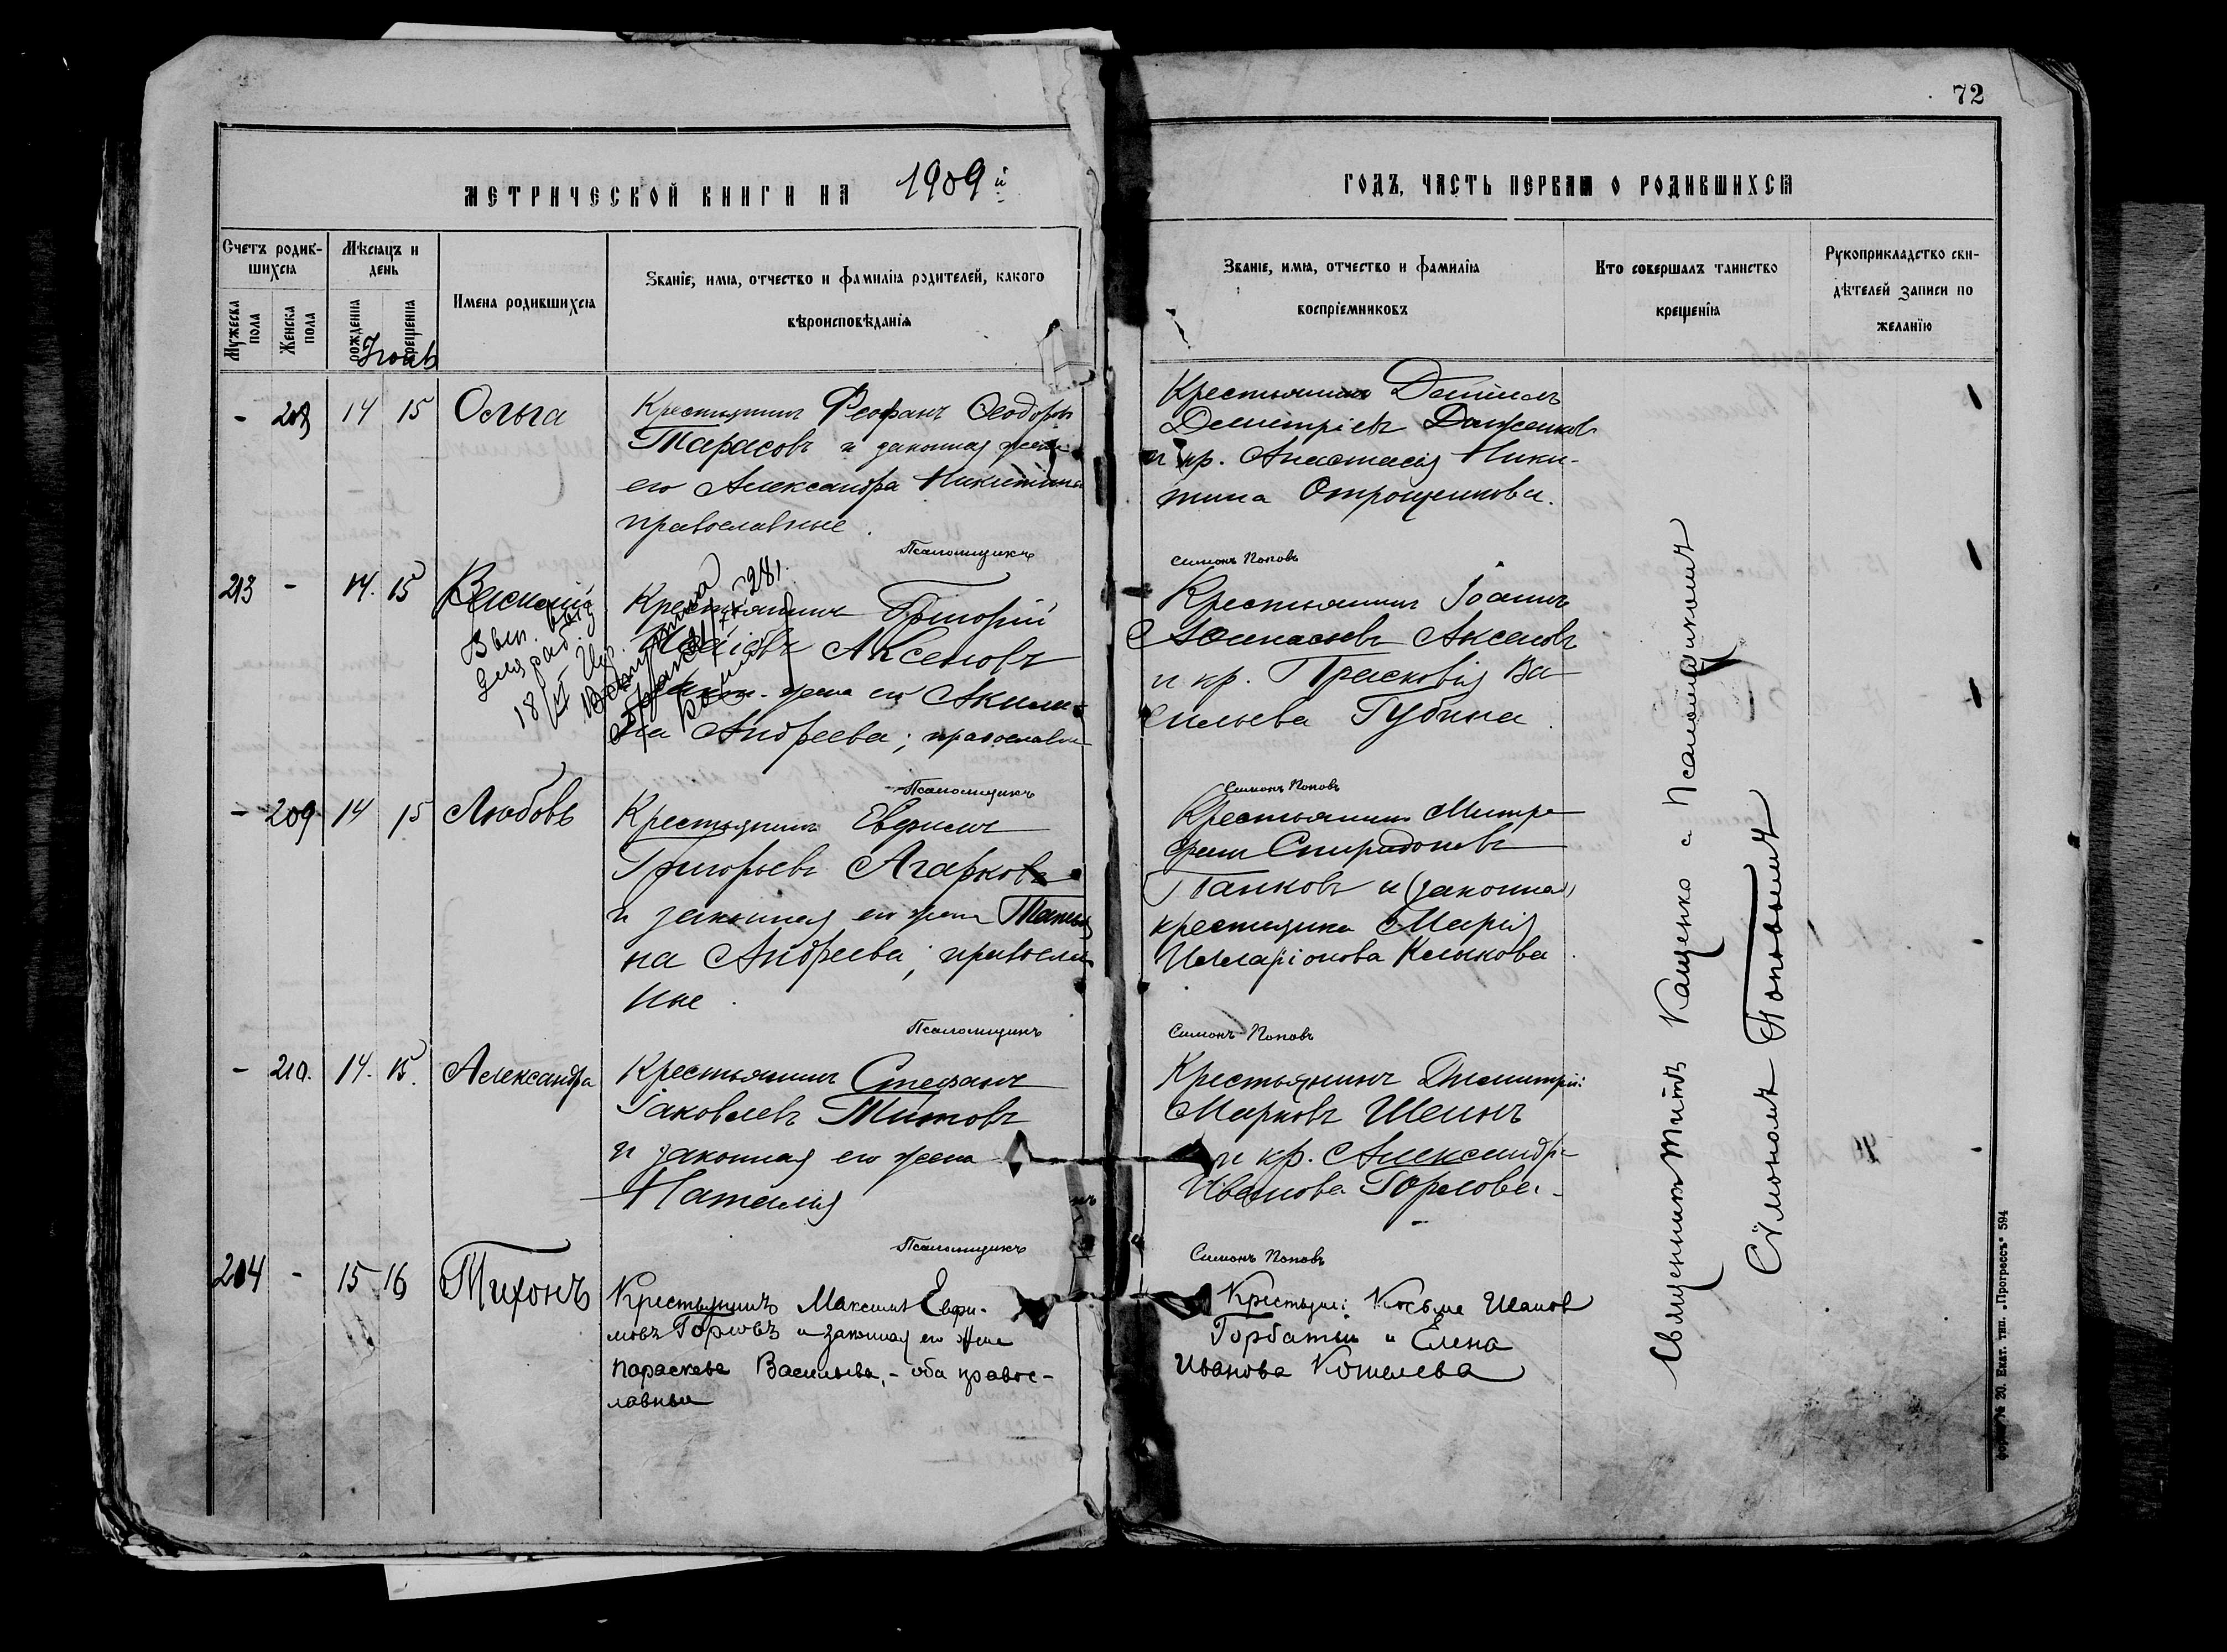 72
МЕТРИЧЕСКОЙ КНИГИ НА 1909й
ГОДЪ, ЧАСТЬ ПЕРВАЯ О РОДИВШИХСЯ
Счетъ родив-
шихся
Мужеска пола
Женска пола
Мѣсяцъ и
день
рожденія
крещенія
Имена родившихся
Званіе, имя, отчество и фамилія родителей, какого
вѣроисповѣданія
Званіе, имя, отчество и фамилія
воспріемниковъ
Кто совершалъ таинство
крещенія
Рукоприкладство сви-
дѣтелей записи по
желанію
- 208 14 15 Ольга
Крестьянинъ Феофанъ Ѳеодоровъ
Тарасовъ и законная жена
его Александра Никитина
православные.
Псаломщикъ
Крестьянинъ
Димитріевъ
и кр. Анастасія Ники-
тина Отрощенкова.
Симонъ Поповъ
213 - 14. 15 Василій
Вып.
18/XI
Крестьянинъ Григорій
Аксеновъ
закон. жена его Акили-
на Андреева; православн
Псаломщикъ
Крестьянинъ Іоаннъ
Аксеновъ
и кр. Прасковія Ва
сильева Губина.
Симонъ Поповъ
- 209 14 15 Любовь
Крестьянинъ
Григорьевъ Агарковъ
и законная его жена Татья
на Андреева; правосла
ные.
Псаломщикъ
Крестьянинъ Митро
фанъ Спиридоновъ
Панковъ и (законная)
крестьянка Марія
Илларіонова Клыкова.
Симонъ Поповъ
- 210. 14. 15. Александра
Крестьянинъ Стефанъ
Іаковлевъ Титовъ
и законная его жена
Наталія
Псаломщикъ
Крестьянинъ Димитрій
Марковъ Шеинъ
и кр. Александра
Иванова Горлова.
Симонъ Поповъ
214 - 15 16 Тихонъ
Крестьянинъ Максимъ Евфи-
мовъ Горловъ и законная его жена
Параскева Васильева, - оба правос-
лавные
Крестьяне: Косьма Иванов
Горбатый и Елена
Иванова Кошелева
Священникъ Титъ Кащенко с Псаломщикомъ
Сѵмономъ Поповымъ
Форма № 20. Екат. тип. „Прогрессъ“ 594